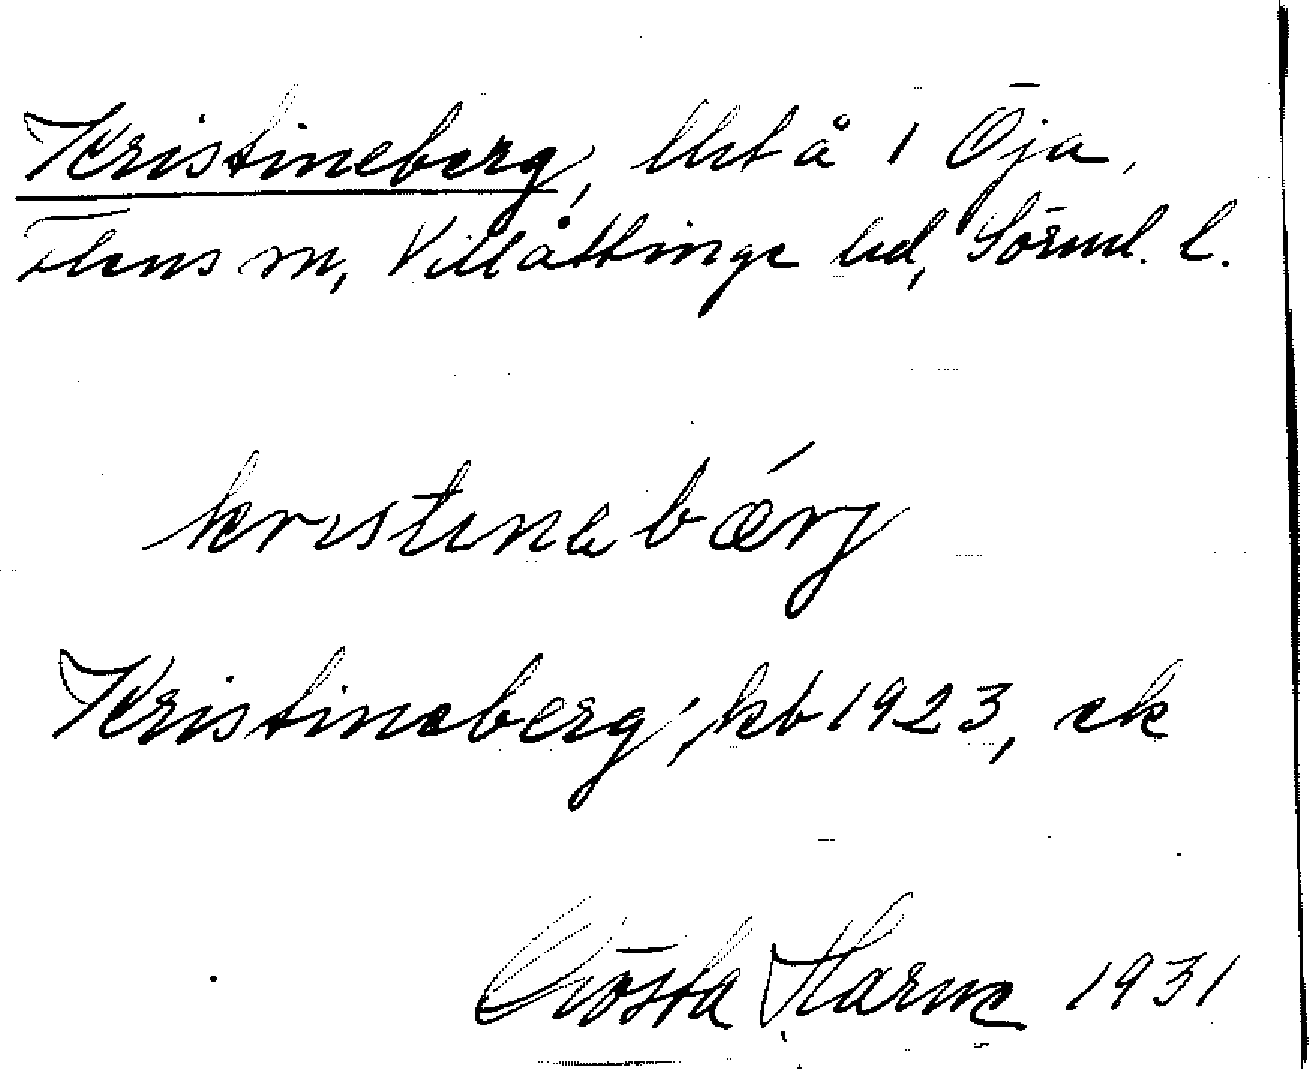 Kristineberg, Utå i Öja,
Flens sn, Villåttinge hd, Sörml. l.
kristinebærj
Kristineberg, kb 1923, ek
Gösta Harne 1931